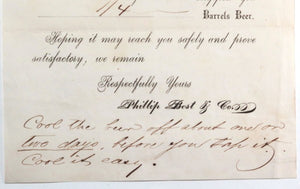 1/4
Barrels Beer.
Hoping it may reach you safely and prove
satisfactory, we remain
Respectfully Yours
Phillip Best & Co.
Cool the beer off about one or
two days, before you tap it
Cool it easy.